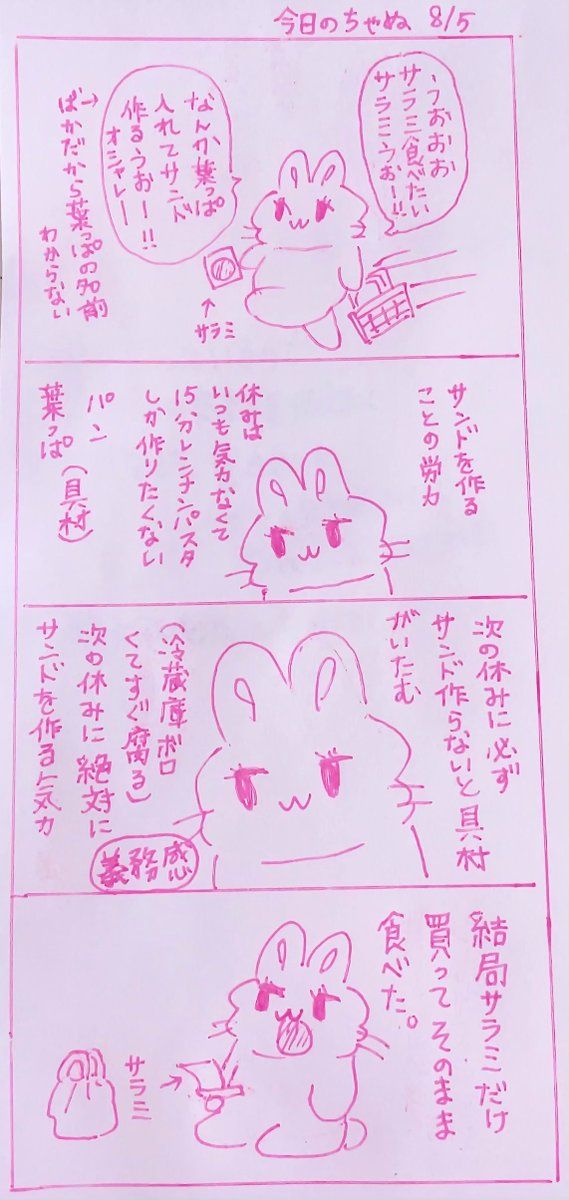 今日のちゃぬ 8/5
うおおお
サラミ食べたい
サラミうおー!!
なんか葉っぱ
入れてサンド
作るうおー!!
オシャレー
↑
サラミ
→ばかだから葉っぱの名前
わからない
サンドを作る
ことの労力
休みは
いつも気力なくて
15分レンチンパスタ
しか作りたくない
パン
葉っぱ(具材)
次の休みに必ず
サンド作らないと具材
がいたむ
(冷蔵庫ボロ
くてすぐ腐る)
次の休みに絶対に
サンドを作る気力
義務感
結局サラミだけ
買ってそのまま
食べた。
サラミ→